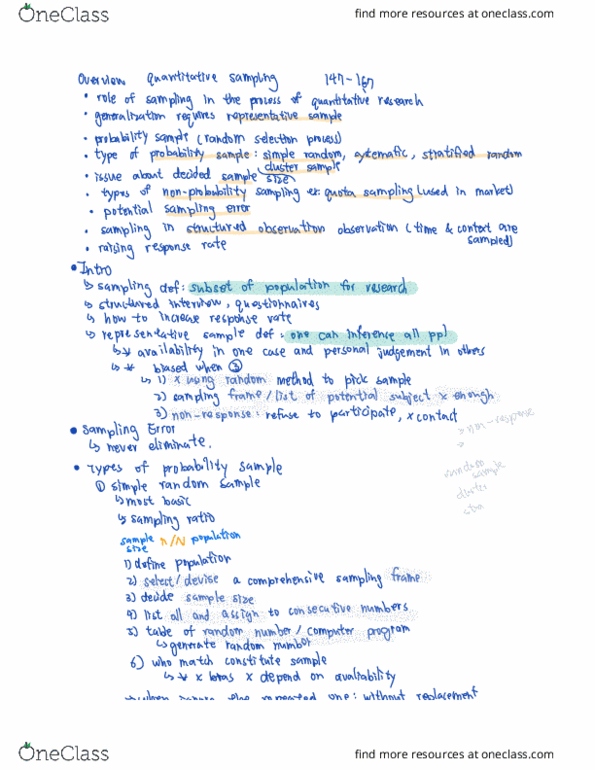 OneClass
find more resources at oneclass.com
Overview Quantitative Sampling 147-167
• role of sampling in the process of quantitative research
• generalization requires representative sample
• probability sample (random selection process)
• type of probability sample : simple random, systematic, stratified random
cluster sample
• issue about decided sample size
• types of non-probability sampling ex: quota sampling (used in market)
• potential sampling error
• sampling in structured observation observation (time & context are
sampled)
• raising response rate
• Intro
↳ sampling def: subset of population for research
↳ structured interview, questionnaires
↳ how to increase response rate
↳ representative sample def: one can inference all ppl
↳ * availability in one case and personal judgement in others
↳ * biased when ③
↳ 1) x using random method to pick sample
2) sampling frame/list of potential subject x enough
3) non-response: refuse to participate, x contact
> non-response
>
• Sampling Error
↳ never eliminate.
• Types of probability sample
random
sample
cluster
stra
① simple random sample
↳ most basic
↳ sampling ratio
sample size n/N population
1) define population
2) select/devise a comprehensive sampling frame
3) decide sample size
4) list all and assign to consecutive numbers
5) table of random number/computer program
↳ generate random number
6) who match constitute sample
↳ * x bias x depend on availability
one: without replacement
OneClass
find more resources at oneclass.com